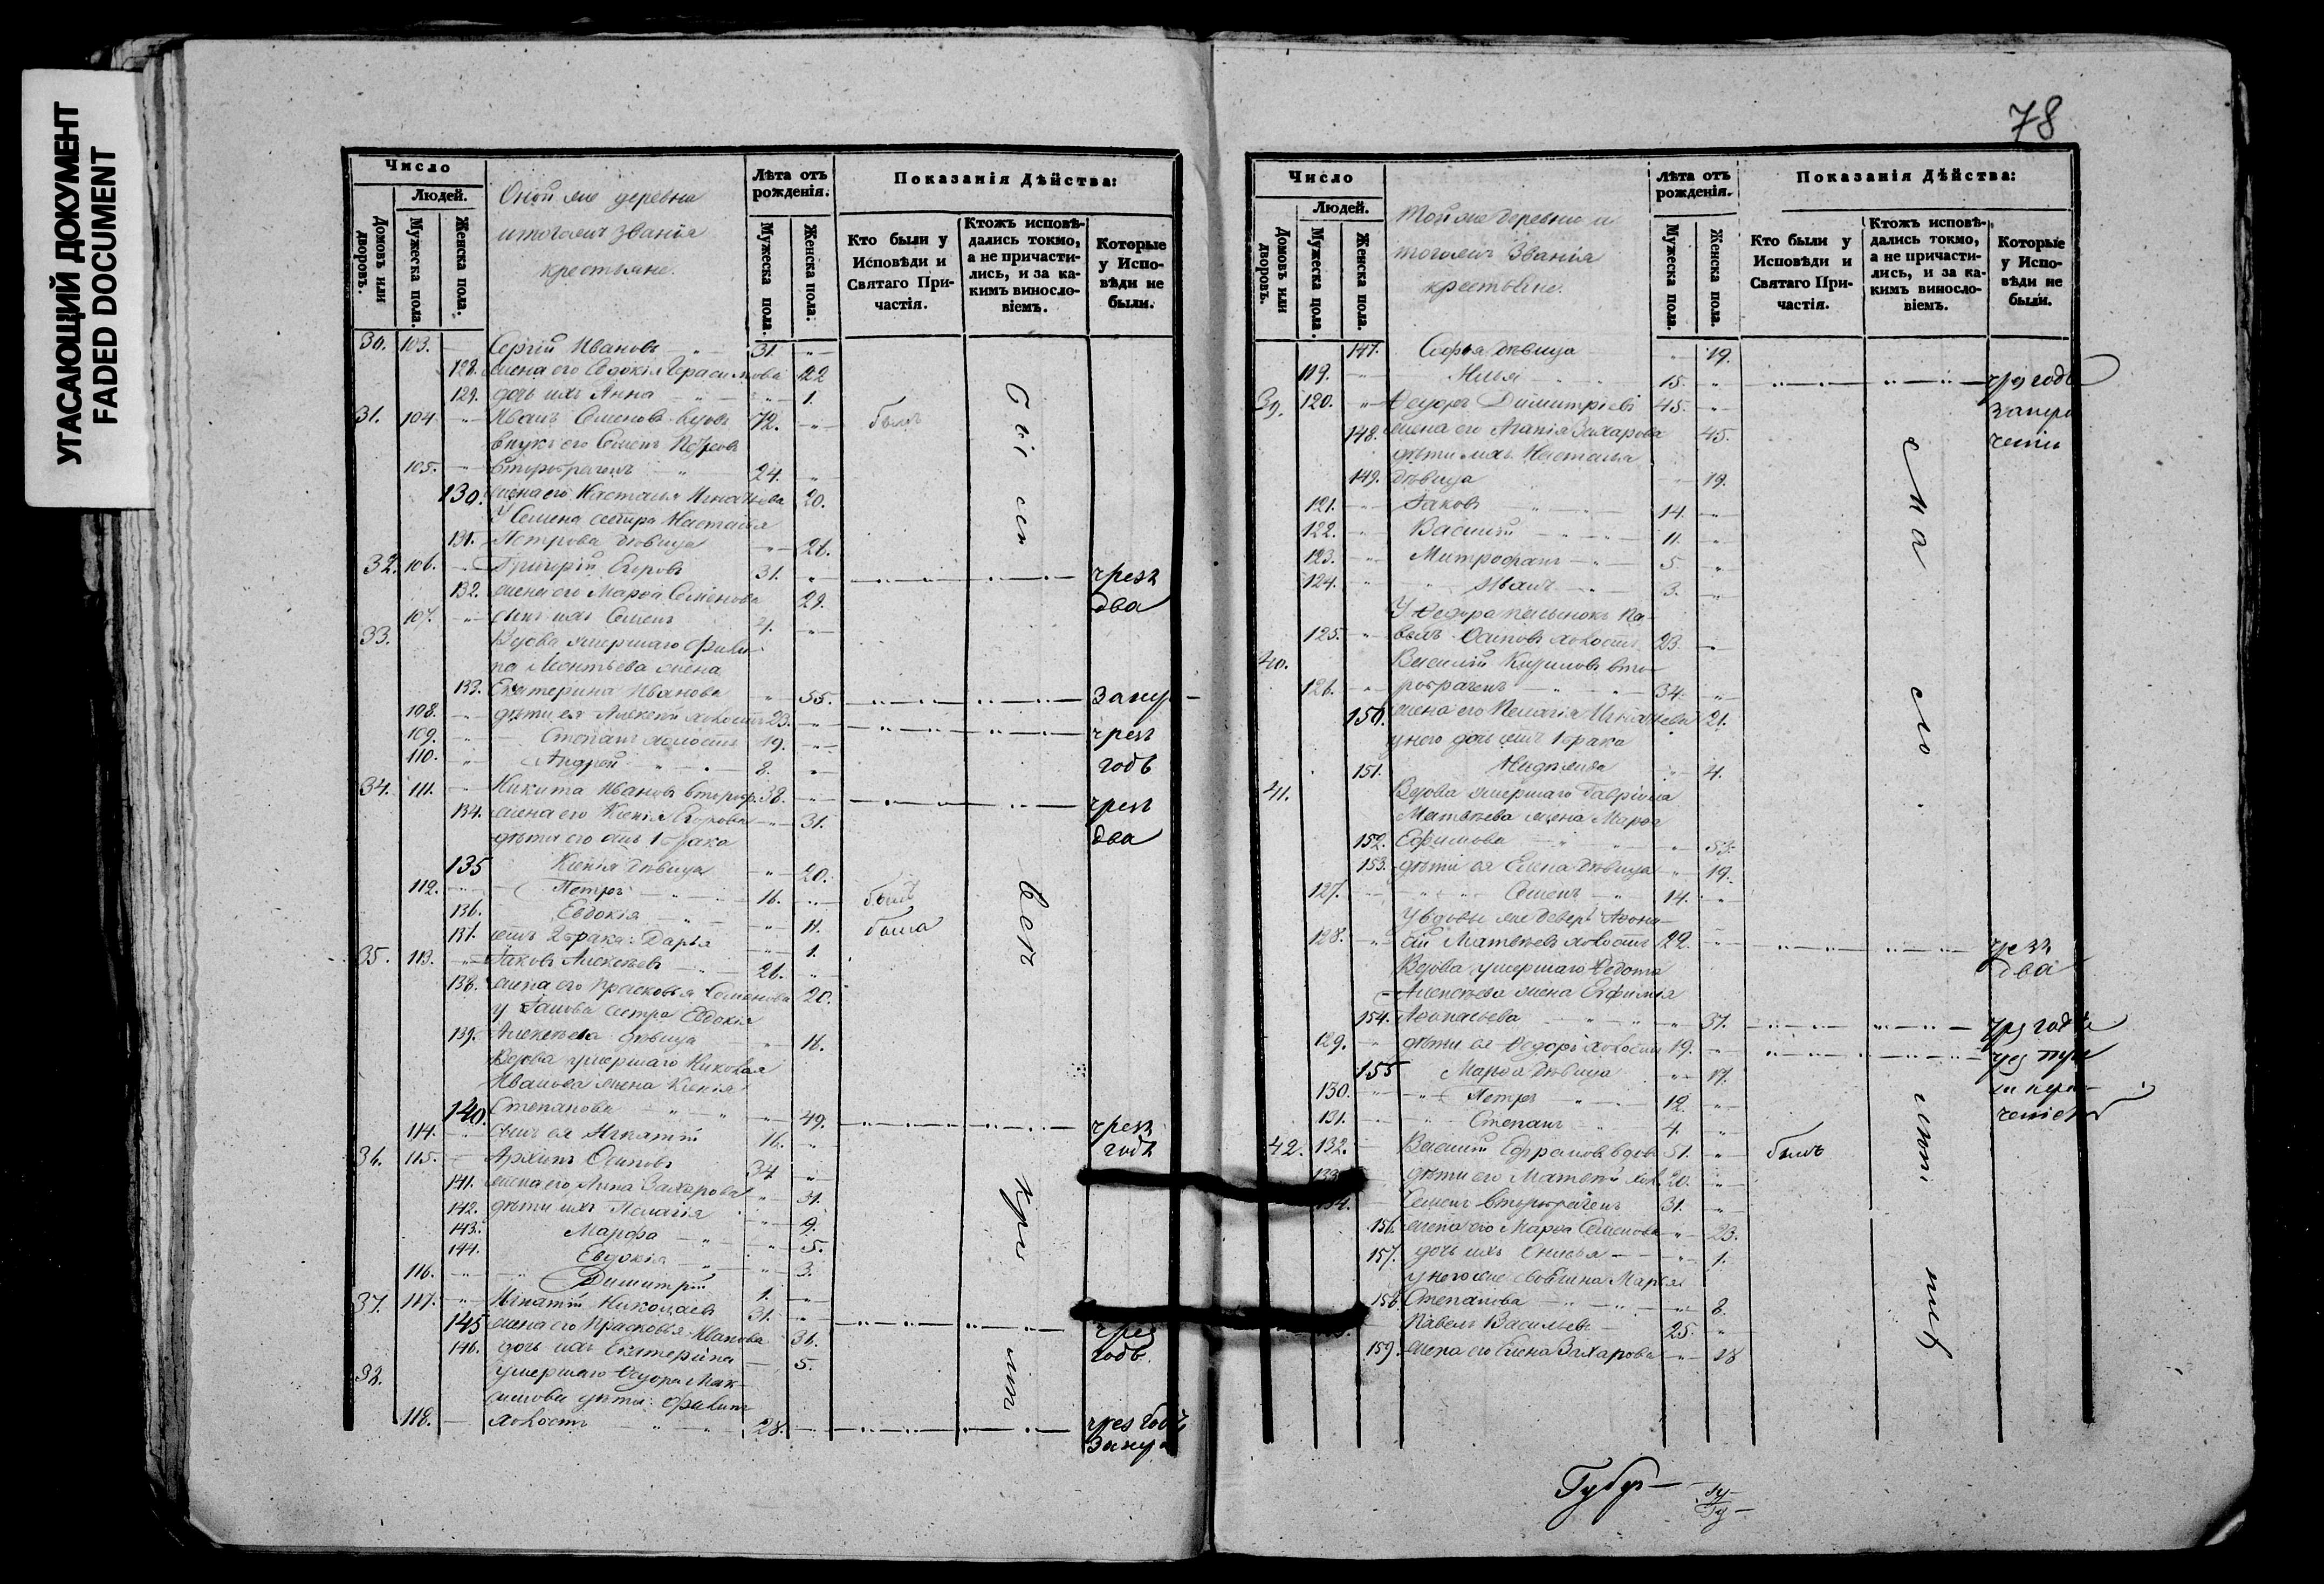 УГАСАЮЩИЙ ДОКУМЕНТ
FADED DOCUMENT
Число
Людей.
Домовъ или дворовъ.
Мужеска пола.
Женска пола.
Оной же деревни
и тогожъ званія
крестьяне.
Лѣта отъ рожденія.
Мужеска пола.
Женска пола.
Показанія Дѣйства:
Кто были у Исповѣди и Святаго Причастія.
Ктожъ исповѣдались токмо, а не причастились, и за какимъ винословіемъ.
Которые у Исповѣди не были.
30. 103. Сергій Ивановъ 31.
128. жена его Евдокія Герасимова 22
129. дочь ихъ Анна 1.
31. 104. Иванъ Семеновъ вдовъ 72. былъ
внукъ его Семенъ Петровъ
105. второбраченъ 24.
130. жена его Настасья Игнатьева 20.
У Семена сестра Настасья
131. Петрова дѣвица 26.
32. 106. Григорій Егоровъ 31. чрезъ
132. жена его Марѳа Семенова 29. два
107. сынъ ихъ Семенъ 4.
33. Вдова умершаго Филип
па Леонтьева жена
133. Екатерина Иванова 55. запу
108. дѣти ея Алексѣй холостъ 23.
109. Степанъ холостъ 19. чрезъ
110. Андрей 8. годъ
34. 111. Никита Ивановъ второбр. 38. чрезъ
134. жена его Ксенія Егорова 31. два
дѣти его отъ 1 брака
135 Ксенія дѣвица 20.
112. Петръ 16. былъ
136. Евдокія 11. была
137. отъ 2 брака: Дарья 1.
35. 113. Іаковъ Алексѣевъ 21.
138. жена его Прасковья Семенова 20.
у Іакова сестра Евдокія
139. Алексѣева дѣвица 18.
Вдова умершаго Николая
Иванова жена Ксенія
140. Степанова 49. чрезъ
114. сынъ ея Игнатій 16. годъ
36. 115. Архипъ Осиповъ 34
141. жена его Анна Захарова 31.
142. дѣти ихъ Пелагія 9.
143. Марфа 5.
144. Евдокія 3.
116. Димитрій 1.
37. 117. Игнатій Николаевъ 31.
145 жена его Прасковья Иванова 31. чрез
146. дочь ихъ Екатерина 5. годъ.
38. умершаго Ѳедора Мак
симова дѣти: Филипъ
118. холостъ 28. чрез годъ
запу
Сіи
всѣ
78
Число
Людей.
Домовъ или дворовъ.
Мужеска пола.
Женска пола.
Той же деревни и
тогожъ званія
крестьяне.
Лѣта отъ рожденія.
Мужеска пола.
Женска пола.
Показанія Дѣйства:
Кто были у Исповѣди и Святаго Причастія.
Ктожъ исповѣдались токмо, а не причастились, и за какимъ винословіемъ.
Которые у Исповѣди не были.
147. Софья дѣвица 19.
119. Илья 15. чрз годъ
39. 120. Ѳедоръ Димитріевъ 45.
148. жена его Агапія Захарова 45.
дѣти ихъ Настасья
149. дѣвица 19.
121. Іаковъ 14.
122. Василій 11.
123. Митрофанъ 5.
124. Иванъ 3.
У Ѳедора пасынокъ Па
125. велъ Осиповъ холостъ 23.
40. Василій Кириловъ вто
126. робраченъ 34.
150. жена его Пелагія Игнатьева 21.
у него дочь отъ 1 брака
151. Авдотья 4.
41. Вдова умершаго Гавріила
Матвѣева жена Марѳа
152. Ефимова 53.
153. дѣти ея Елена дѣвица 19.
127. Семенъ 14.
У вдовы же деверь Аѳона
128. сій Матвѣевъ холостъ 22. чрезъ
Вдова умершаго Ѳедота два
Алексѣева жена Евфимія
154. Аѳонасьева 37. чрз годъ
129. дѣти ея Ѳедоръ холостъ 19.
155 Марѳа дѣвица 17.
130. Петръ 12.
131. Степанъ 4.
42. 132. Василій Ефремовъ вдовъ 51. былъ
133 дѣти его Матвѣй хол. 20.
134. Семенъ второбраченъ 31.
156. жена его Марѳа Семенова 23.
157. дочь ихъ Анисья 1.
у него же своячина Марья
158. Степанова 8.
Павелъ Васильевъ 25.
159. жена его Елена Захарова 28